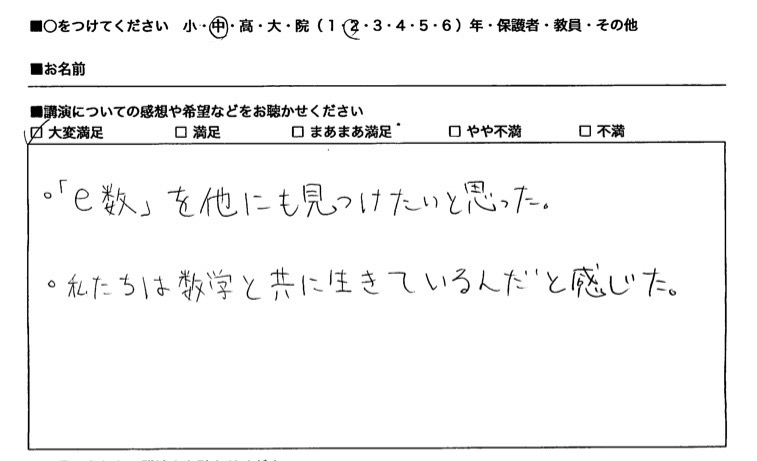 ■○をつけてください 小・中・高・大・院（1・2・3・4・5・6）年・保護者・教員・その他
■お名前
■講演についての感想や希望などをお聴かせください
☑ 大変満足 □ 満足 □ まあまあ満足 □ やや不満 □ 不満
。「e数」を他にも見つけたいと思った。
。私たちは数学と共に生きているんだと感じた。